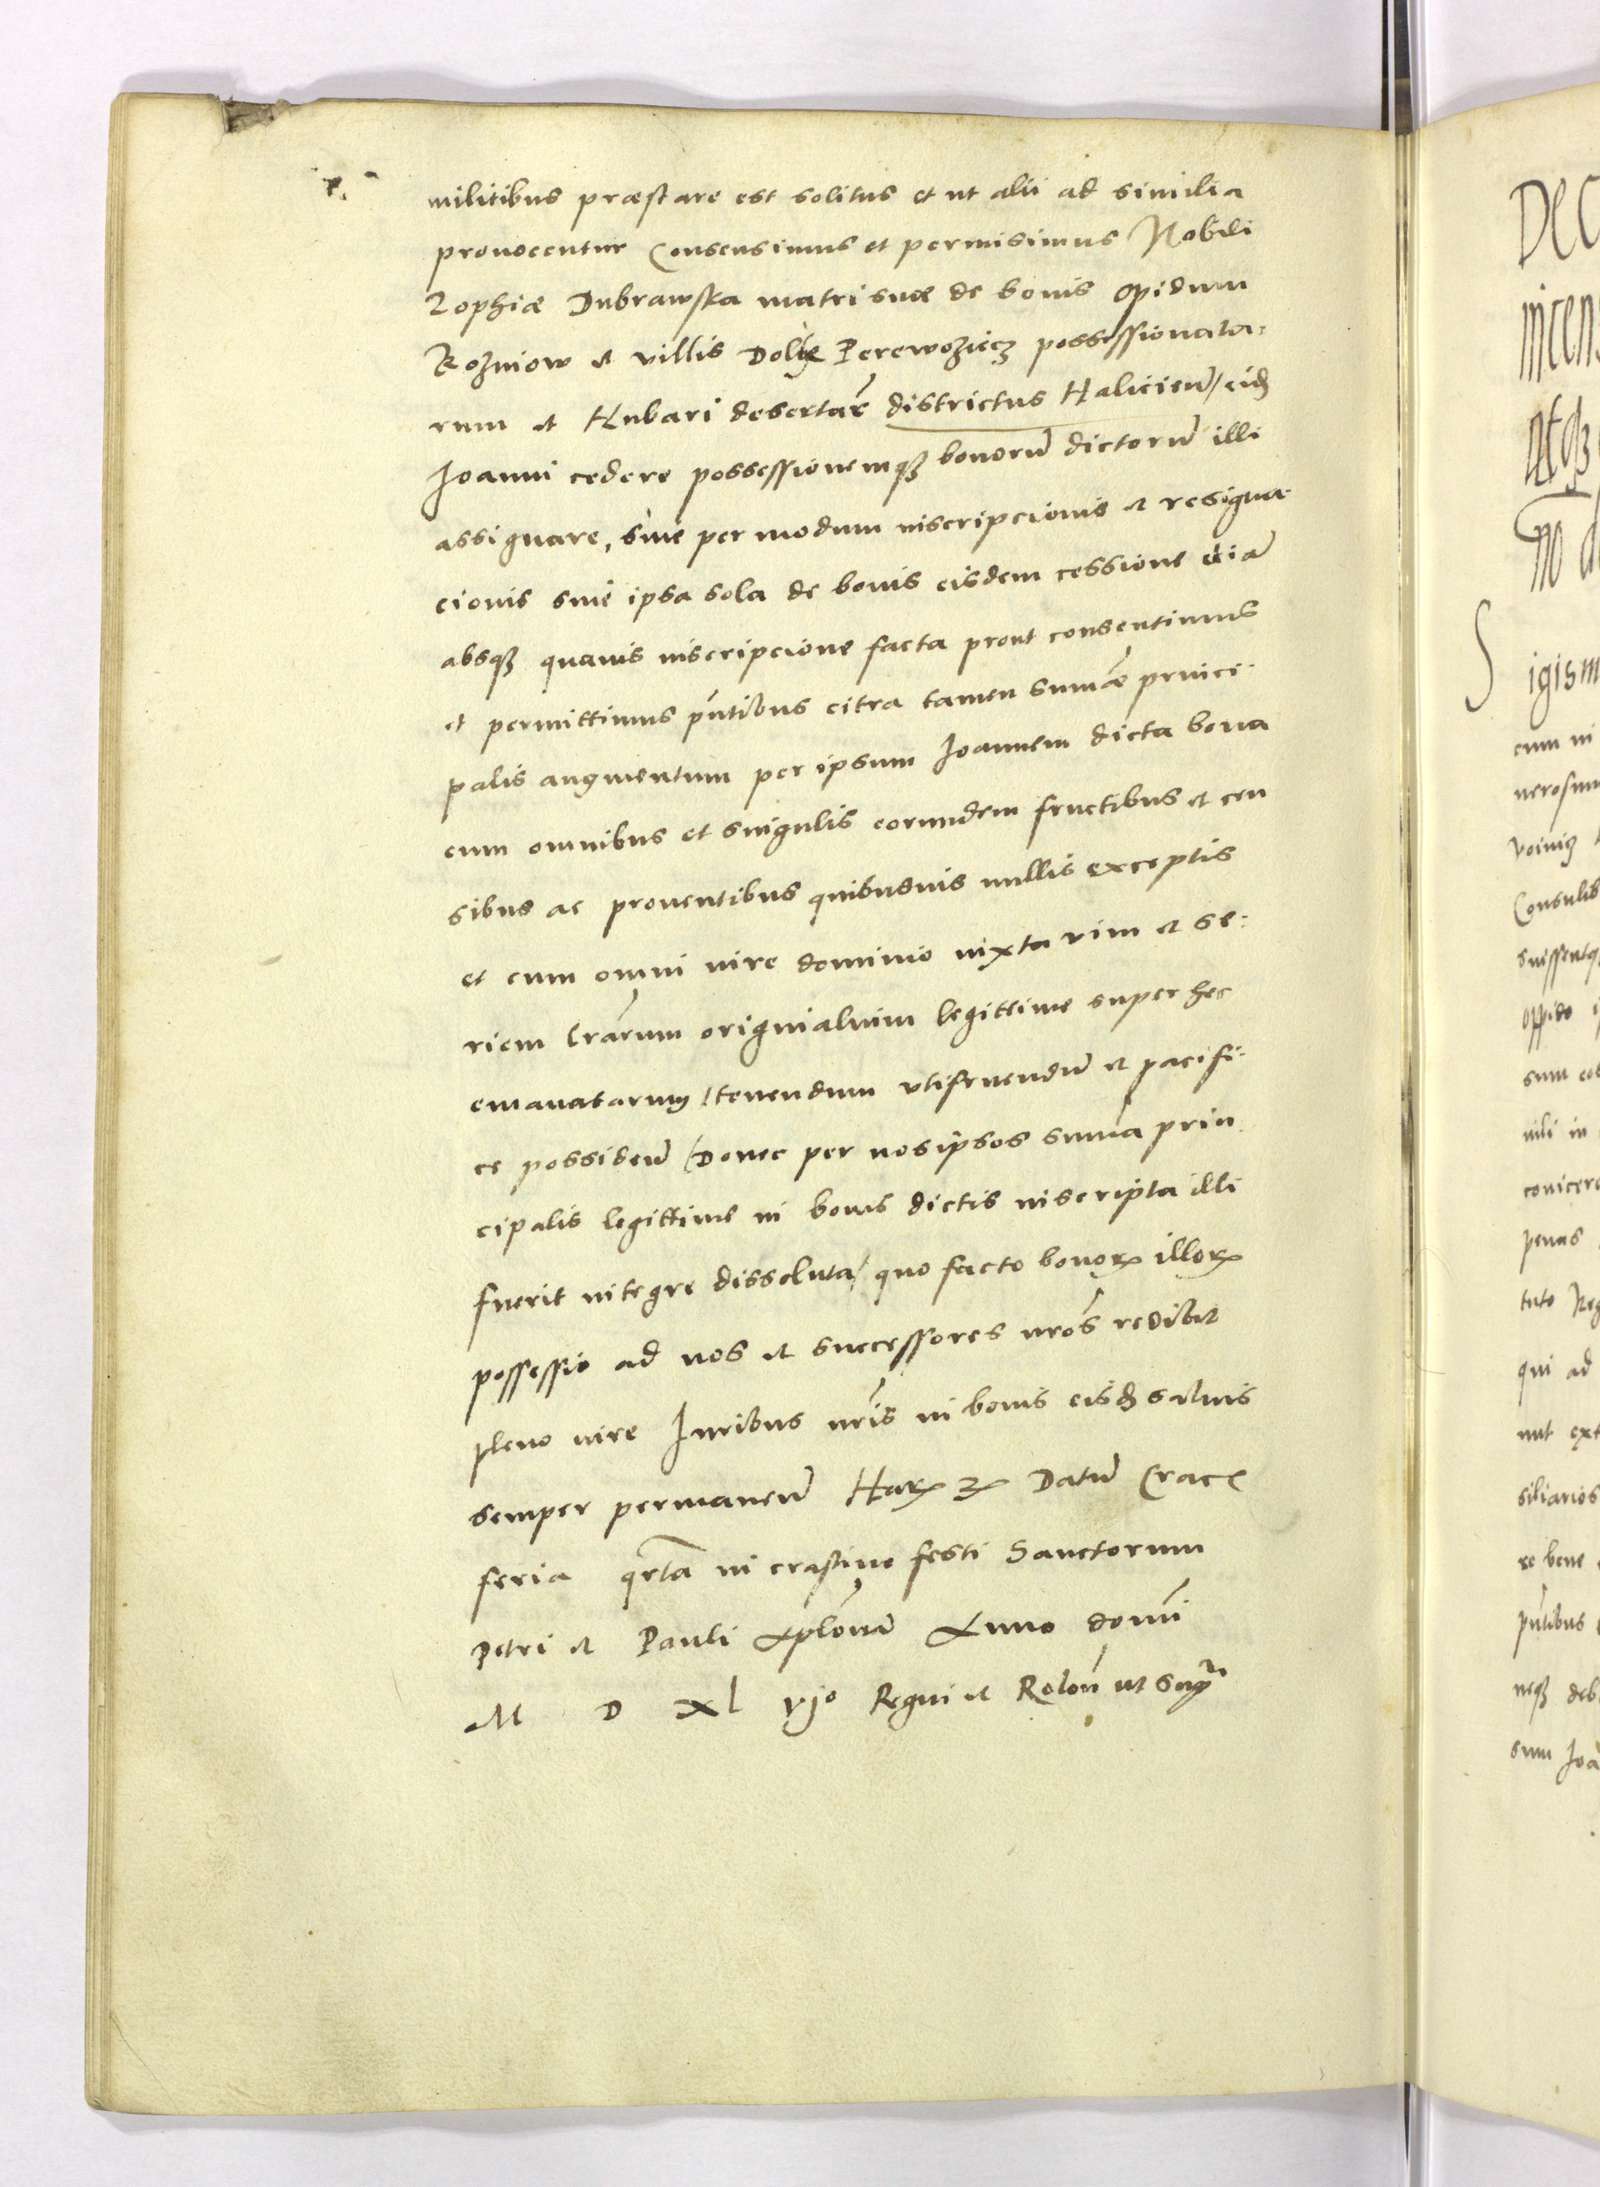 militibus præstare est solitus et ut alii ad similia
provocentur Consensimus et permisimus Nobili
Zophiæ Dubrawska matri suæ de bonis Opidum
Rozniow et villis Dolhe Perewoziecz possessionata-
rum et Hubari desertar̃ districtus Haliciens̃/ eidẽ
Joanni cedere possessionemqꝫ bonorũ dictorũ illi
assignare, sive per modum inscripcionis et resigna-
cionis sive ipsa sola de bonis eisdem cessione etiã
absqꝫ quavis inscripcione facta prout consentimus
et permittimus pñtibus citra tamen sum̃æ princi-
palis augmentum per ipsum Joannem dicta bona
cum omnibus et singulis eorundem fructibus et cen
sibus ac proventibus quibusvis nullis exceptis
et cum omni iure dominio iuxta vim et se-
riem l̃rarum originalium legittime super hec
emanatarum/ tenendum utifruendũ et pacifi-
ce possideñ/ Donec per nos ipsos sum̃a prin
cipalis legittime in bonis dictis inscripta illi
fuerit integre dissoluta/ quo facto bonoꝝ illoꝝ
possessio ad nos et successores nr̃os redibit
pleno iure Juribus nr̃is in bonis eisdẽ salvis
semper permaneñ Haꝝ ꝫ Datũ Crace
feria qr̃ta in crastino festi Sanctorum
Petri et Pauli Ap̃lorum Anno domĩ
M D xl vjº Regni et Relõn ut supra
DEC
incen
atqꝫ
Sigism
cum in
nerosum
Consulis
oppido
sum
nili in
penas
tuto Reg
qui ad
aut ext
siliarios
re bene
pñtibus
neqꝫ deb
sum Joã